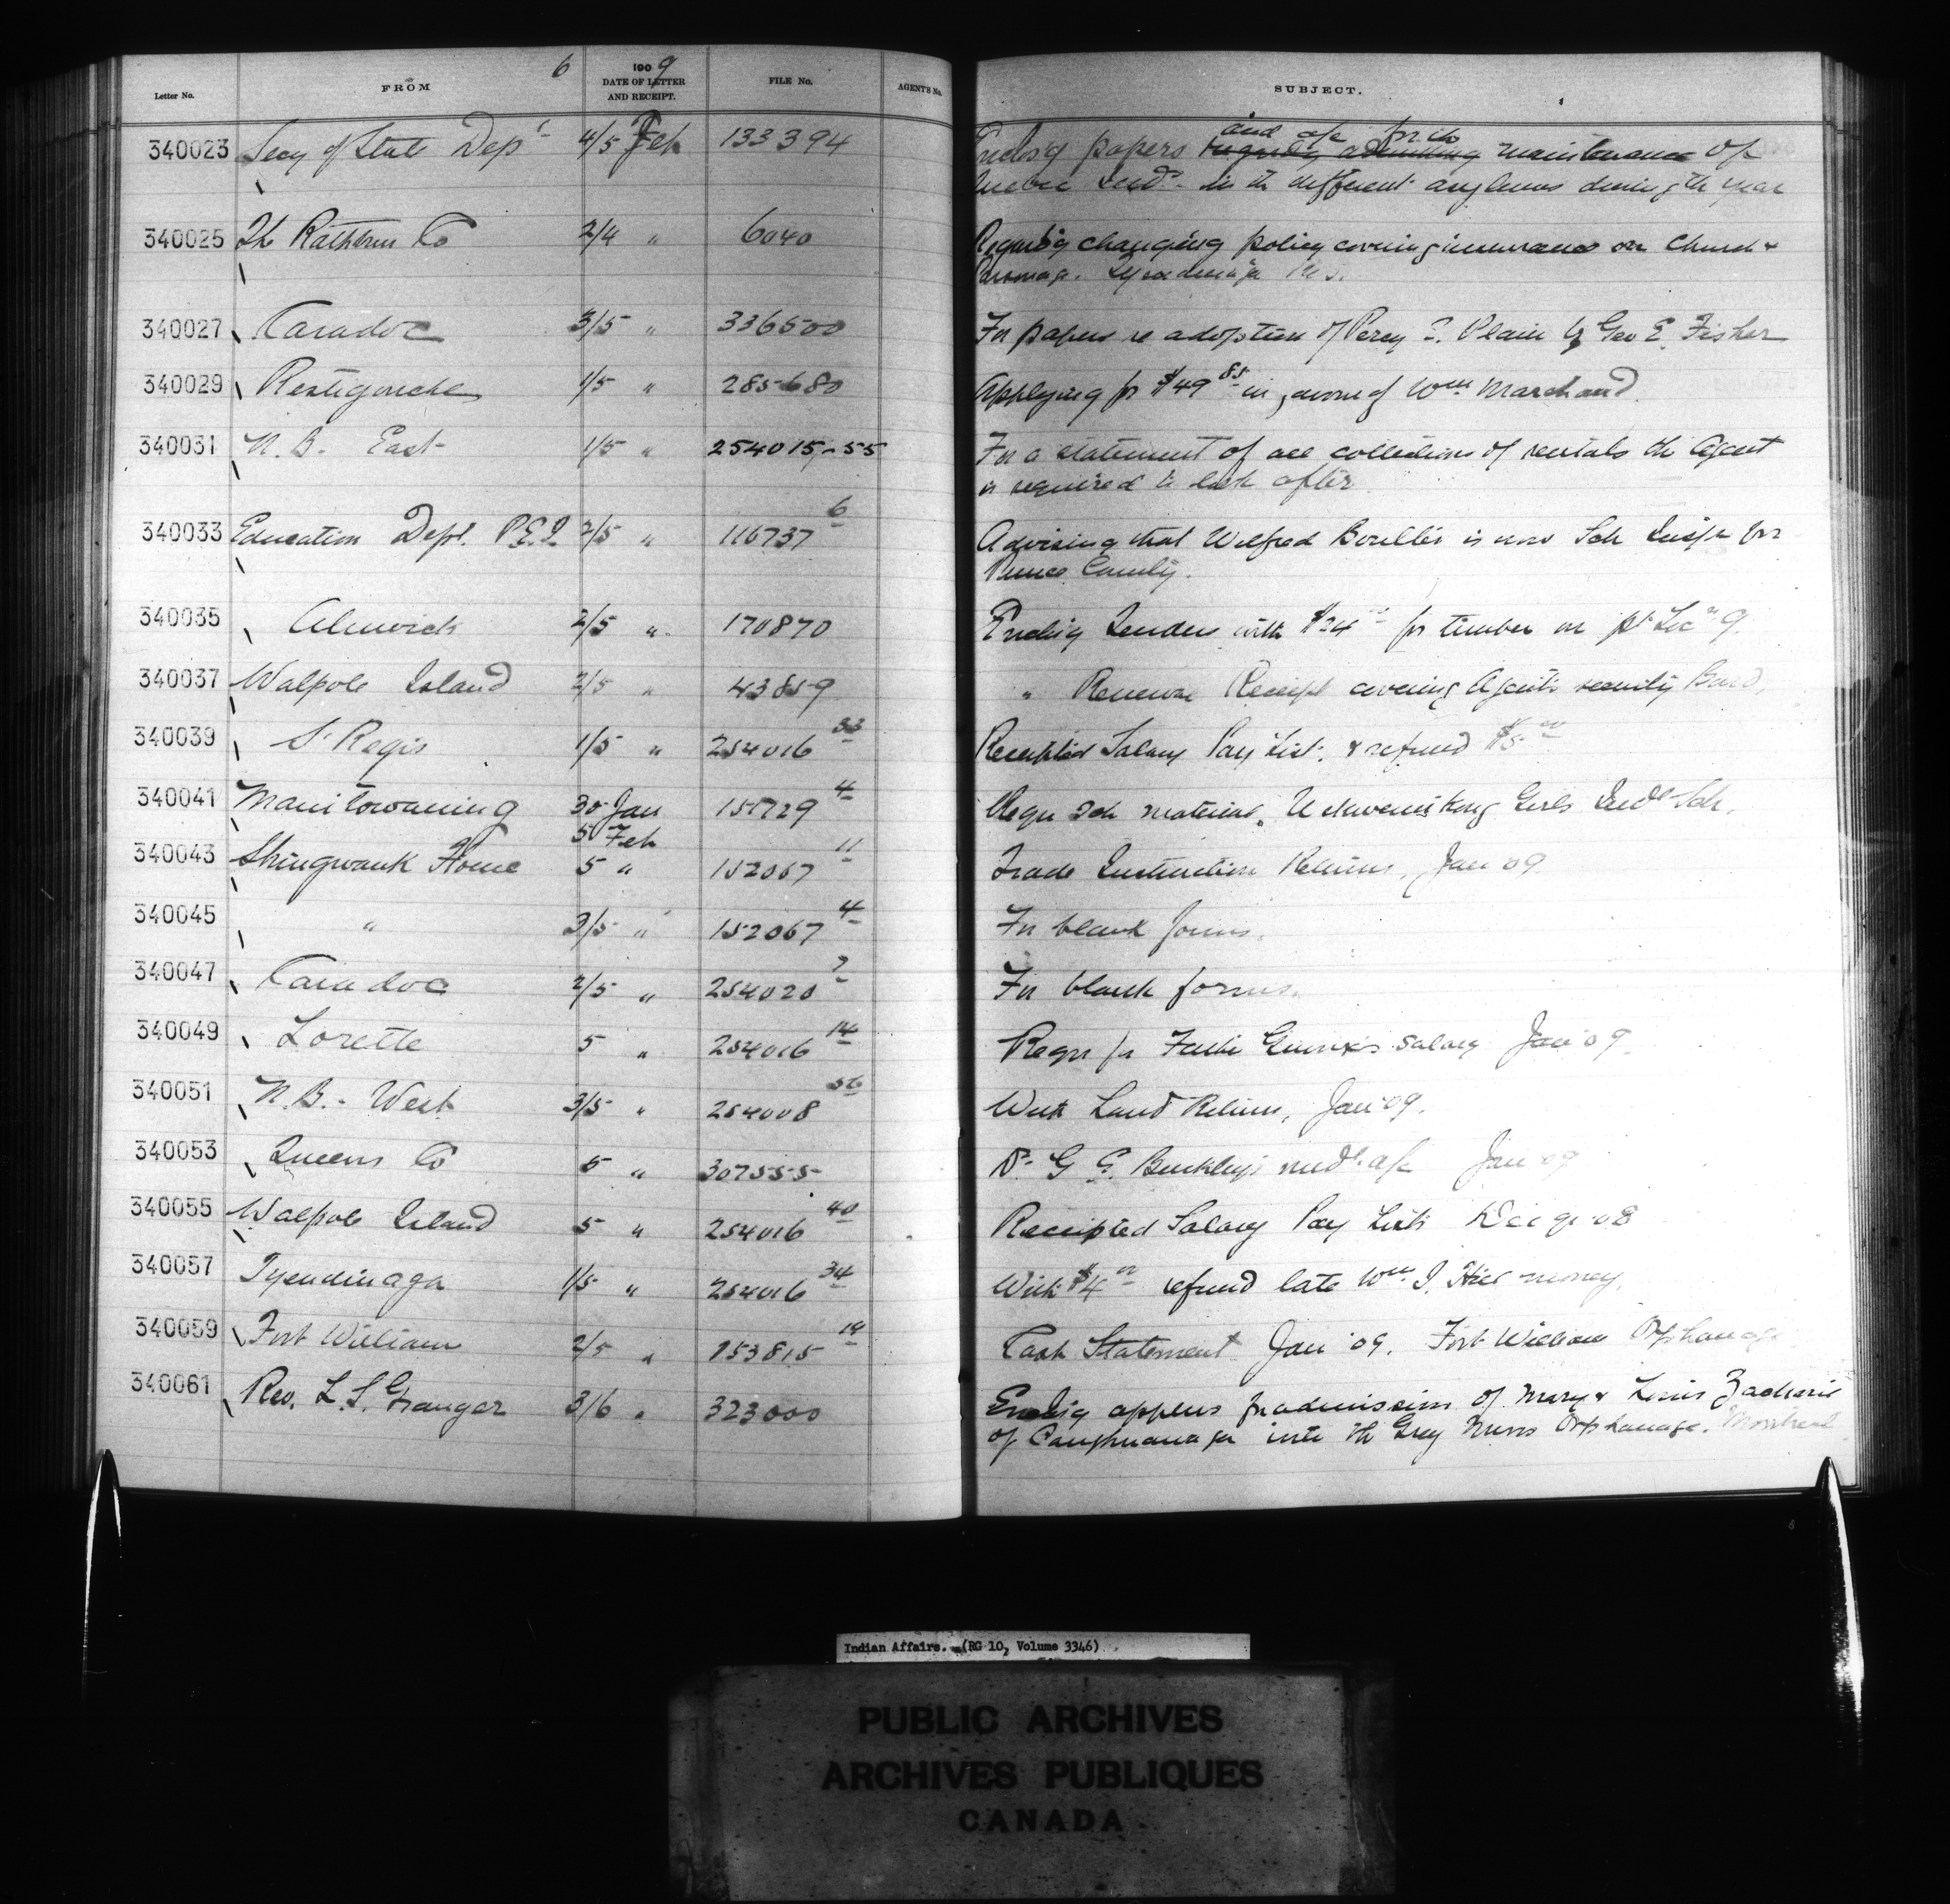 6
1909
Letter No. FROM DATE OF LETTER AND RECEIPT. FILE No. AGENT'S No. SUBJECT.
and a/c for the
340023 Secy of State Dept 4/5 Feb 133394 Enclos'g papers maintenance of
in the different asylums during the year
340025 The Rathbun Co 2/4 " 6040 Regard'g changing policy covering insurance on Church &
Parsonage. Tyendinaga Res.
340027 Caradoc 3/5 " 336500 For papers re adoption of Percy E. Plain by Geo E. Fisher
340029 Restigouche 1/5 " 285680 Applying for $49 85 in favour of Wm Marchand
340031 N.B. East 1/5 " 254015-55 For a statement of all collections of rentals the Agent
is required to look after
340033 Education Dept. P.E.I. 2/5 " 116737 6 Advising that Wilfred is now Sch Insptr for
Prince County.
340035 Alnwick 2/5 " 170870 Enclig Tender with $24 for timber on pt 9
340037 Walpole Island 2/5 " 43859 " Renewal Receipt covering Agent's security Bond,
340039 St Regis 1/5 " 254016 33 Receipted Salary Pay List. & refund $5 00
340041 Manitowaning 30 Jan 151729 4 Requ sch material, Wikwemikong Girls Indl Sch.
5 Feb
340043 Shingwauk Home 5 " 152067 11 Trade Instruction Returns, Jan '09
340045 " 3/5 " 152067 4 For blank forms.
340047 Caradoc 2/5 " 254020 7 For blank forms.
340049 Lorette 5 " 254016 14 Requ for Father Giroux's salary Jan '09
340051 N.B. - West 3/5 " 254008 56 With Land Returns, Jan '09.
340053 Queens Co 5 " 307555 Dr. G E. Buckley's medl a/c Jan '09
340055 Walpole Island 5 " 254016 40 Receipted Salary Pay List Dec qr 08
340057 Tyendinaga 1/5 " 254016 34 With $4 00 refund late Wm. J. Hill money.
340059 Fort William 2/5 " 153815 14 Cash Statement Jan '09. Fort William Orphanage
340061 Rev. L. S. Granger 3/6 " 323000 Enclig applns for admission of Mary & Louis Zacharie
of Caughnawaga into the Grey Nuns Orphanage. Montreal
Indian Affairs. (RG 10, Volume 3346)
PUBLIC ARCHIVES
ARCHIVES PUBLIQUES
CANADA